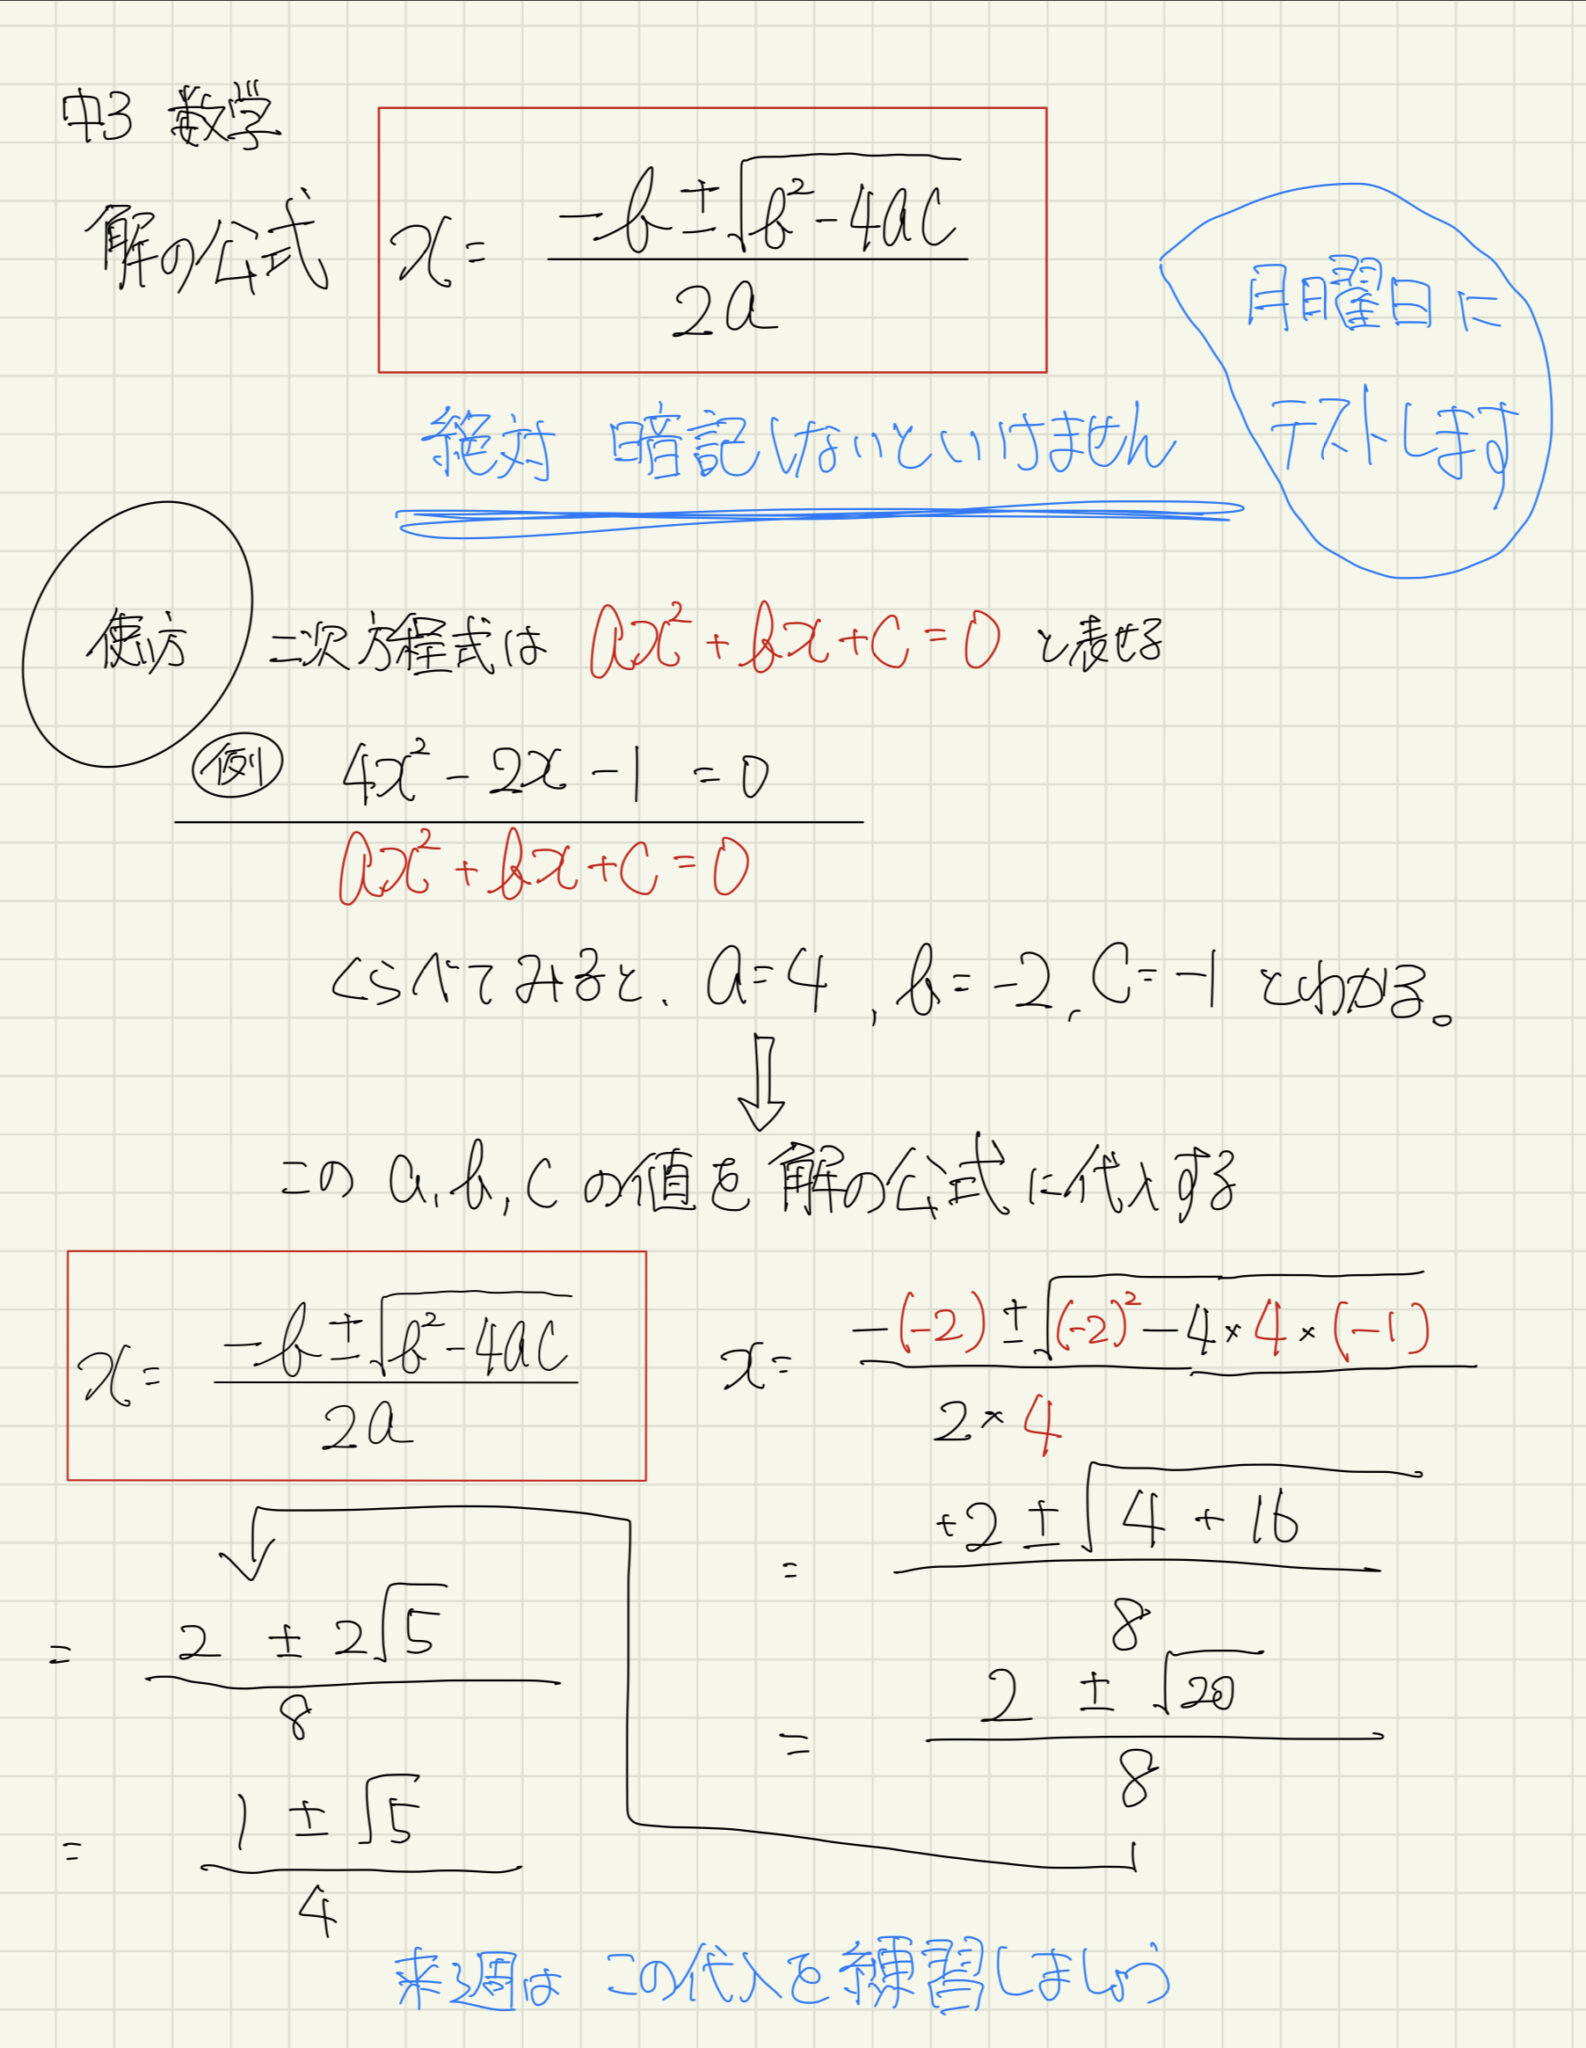 中3 数学
解の公式 x = (-b ± √(b² - 4ac)) / 2a
月曜日に
テストします
絶対 暗記しないといけません
使い方 二次方程式は ax² + bx + c = 0 と表せる
例 4x² - 2x - 1 = 0
ax² + bx + c = 0
くらべてみると、a = 4, b = -2, c = -1 とわかる。
この a, b, c の値を 解の公式に代入する
x = (-b ± √(b² - 4ac)) / 2a
x = (-(-2) ± √((-2)² - 4 × 4 × (-1))) / (2 × 4)
= (+2 ± √(4 + 16)) / 8
= (2 ± √20) / 8
= (2 ± 2√5) / 8
= (1 ± √5) / 4
来週は この代入を練習しましょう